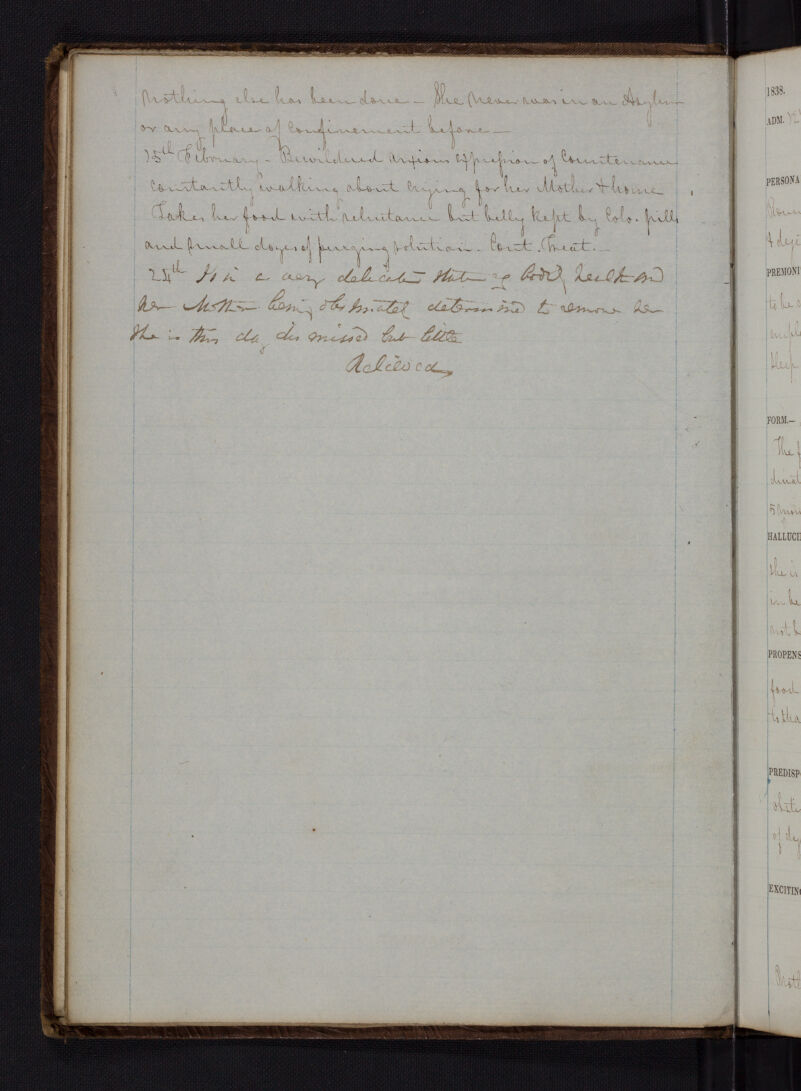 Nothing else has been done - She never was in an Asylum
or any place of Confinement before -
15th February - Bewildered anxious expression of Countenance
Constantly walking about Crying for her Mother & home
Takes her food with reluctance but belly kept by Colo. pills
and small doses of purging solution. Cont. Treat. -
24th Is in a very delicate state of bodily health and
her Mother being obstinately determined to remove her
She is this day dismissed but little
Relieved
1838.
ADM.
PERSONA
PREMONI
to be
sleep
FORM.-
The
HALLUCI
she is
in he
not
PROPENS
food
to tha
PREDISP
of
EXCITIN